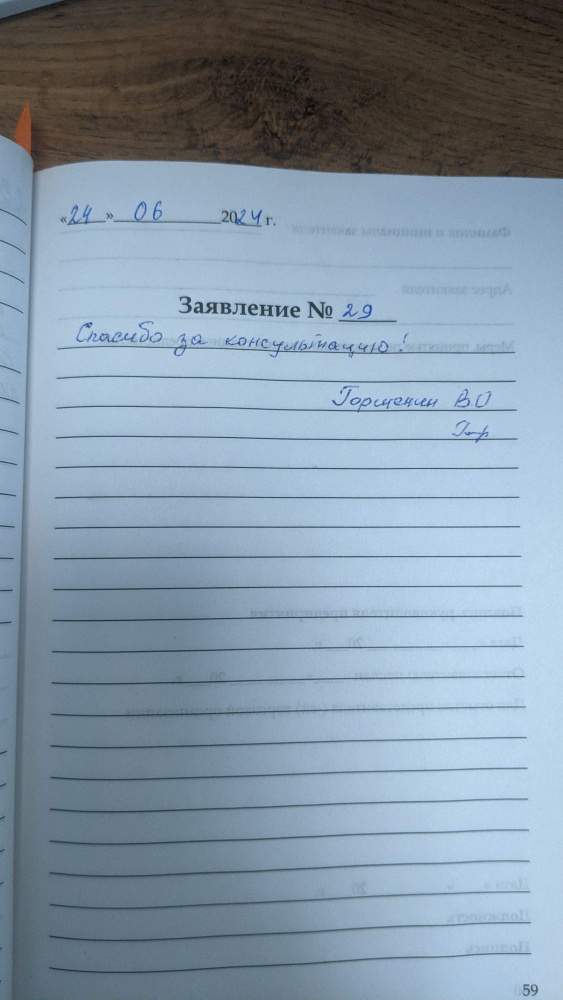 «24» 06 2024 г.
Заявление № 29
Спасибо за консультацию!
Горшенин В.О
59